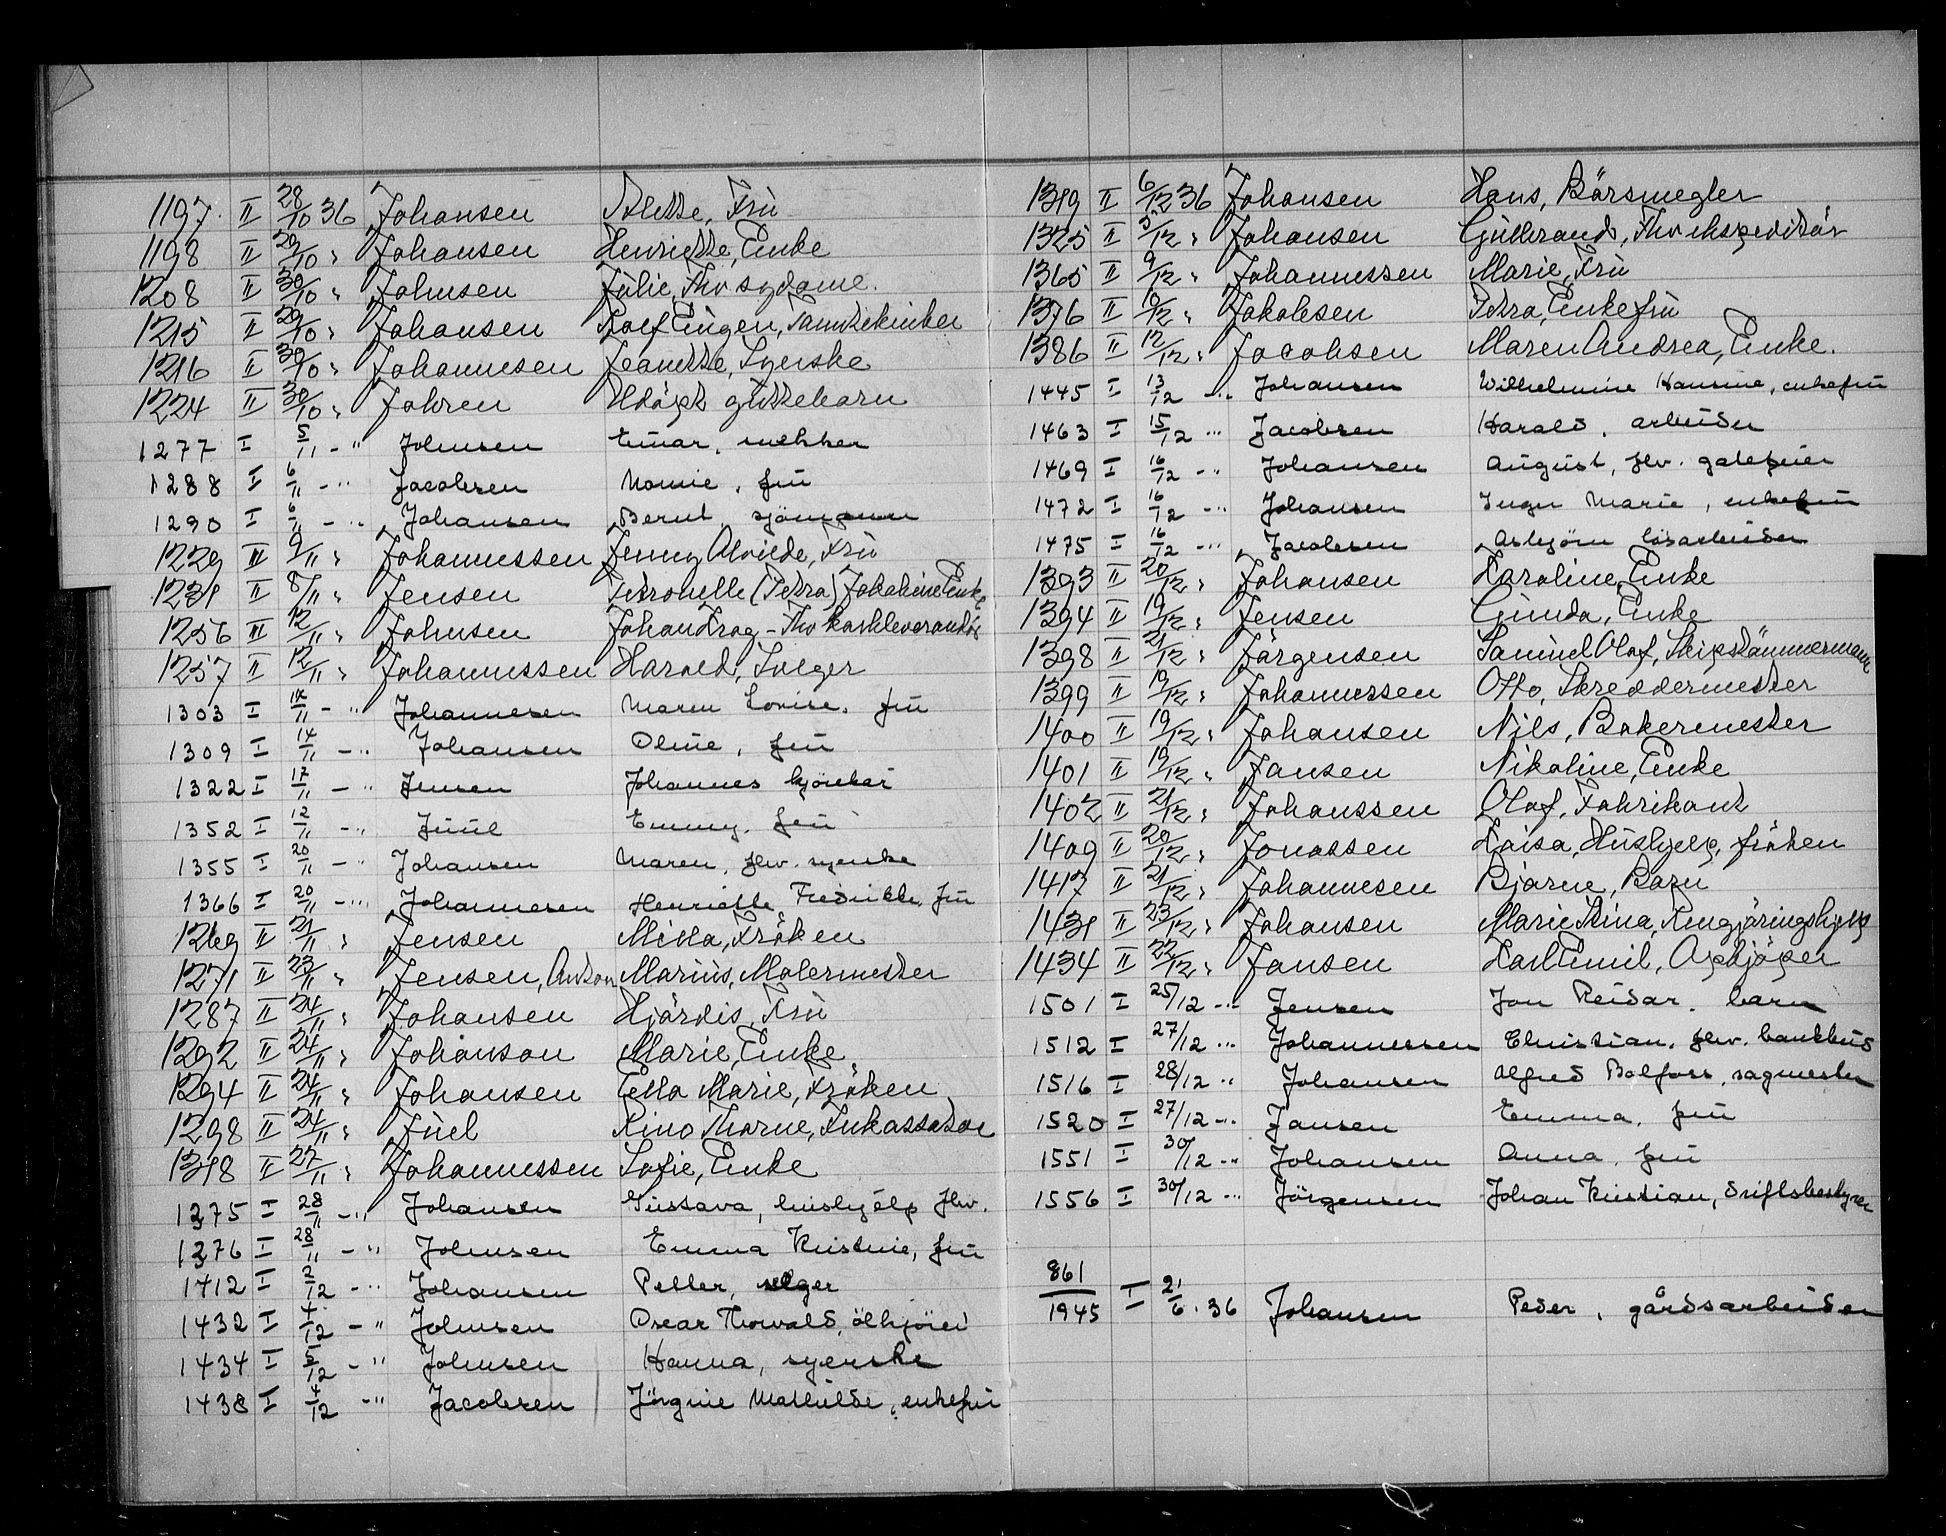 1197 II 28/10 36 Johansen Alette, Frü
1198 II 29/10 " Johansen Henriette, Enke
1208 II 30/10 " Johnsen Julie, Fhv sydame.
1215 II 29/10 " Johansen Rolf Eugen, Tanntekniker
1216 II 30/10 " Johannesen Jeanette, Syerske
1224 II 30/10 " Johren Udöpt guttebarn
1277 I 5/11 - " Johnsen Einar, snekker
1288 I 6/11 - " Jacobsen Nomie, frü
1290 I 6/11 - " Johansen Bernt sjömann
1229 II 9/11 " Johannessen Jenny Alviede, Frü
1231 II 8/11 " Jensen Petronelle (Petra) Jakobine Enke
1256 II 12/11 " Johnsen Johan Krag - Fhv
1257 II 12/11 " Johannessen Harald, Selger
1303 I 14/11 - " Johannesen Maren Lovise, frü
1309 I 14/11 - " Johansen Oline, frü
1322 I 17/11 - " Jensen Johannes kjörekar
1352 I 12/11 - " Juul Emmy, frü
1355 I 20/11 - " Johansen Maren, fhv. syerske
1366 I 20/11 - " Johannesen Henriette Fredrikke, frü
1269 II 21/11 " Jensen Milla, Fröken
1271 II 23/11 " Jensen, Anton Marius, Malermester
1287 II 24/11 " Johansen Hjördis, Frü
1292 II 24/11 " Johanson Marie, Enke
1294 II 24/11 " Johansen Ella Marie, Fröken
1298 II 24/11 " Juel Kino Thorne, Inkassator
1318 II 27/11 " Johannessen Sofie, Enke
1375 I 28/11 - " Johansen Gustava, hushjelp fhv.
1376 I 28/11 - " Johnsen Emma Kristine, frü
1412 I 2/12 - " Johansen Petter, selger
1432 I 4/12 - " Johnsen Oscar Thorvald, ölkjörer
1434 I 5/12 - " Johnsen Hanna, syerske
1438 I 4/12 - " Jacobsen Jörgine Mathilde, enkefrü
1319 II 6/12 36 Johansen Hans, Börsmegler
1325 II 5/12 " Johansen Gulbrand, Fhv ekspeditör
1365 II 9/12 " Johannessen Marie, Frü
1376 II 10/12 " Jakobsen Petra, Enkefrü
1386 II 12/12 " Jacobsen Maren Andrea, Enke.
1445 I 13/12 - " Johansen Wilhelmine Hansine, enkefrü
1463 I 15/12 - " Jacobsen Harald, arbeider
1469 I 16/12 - " Johansen August, fhv. gatefeier
1472 I 16/12 - " Johansen Inger Marie, enkefrü
1475 I 16/12 - " Jacobsen Asbjörn lösarbeider
1393 II 20/12 " Johansen Karoline, Enke
1394 II 19/12 " Jensen Gunda, Enke
1398 II 21/12 " Jörgensen Samuel Olaf, Skipstömmermann
1399 II 19/12 " Johannessen Otto, Skreddermester
1400 II 19/12 " Johansen Nils, Bakermester
1401 II 19/12 " Jansen Nikoline, Enke
1402 II 21/12 " Johanssen Olaf, Fabrikant
1409 II 20/12 " Jonassen Kaisa, Hushjelp, fröken
1417 II 21/12 " Johannesen Bjarne, Barn
1431 II 23/12 " Johansen Marie Stina, Rengjöringshjelp
1434 II 22/12 " Jansen Karl Emil, Opkjöper
1501 I 25/12 - " Jensen Jan Reidar, barn
1512 I 27/12 - " Johannessen Christian, fhv. bankbud
1516 I 28/12 - " Johansen Alfred Balfoss, sagmester
1520 I 27/12 - " Jansen Emma, frü
1551 I 30/12 - " Johansen Anna, frü
1556 I 30/12 - " Jörgensen Johan Kristian, driftsbestyrer
861/1945 I 21/6. 36 Johansen Peder, gårdsarbeider